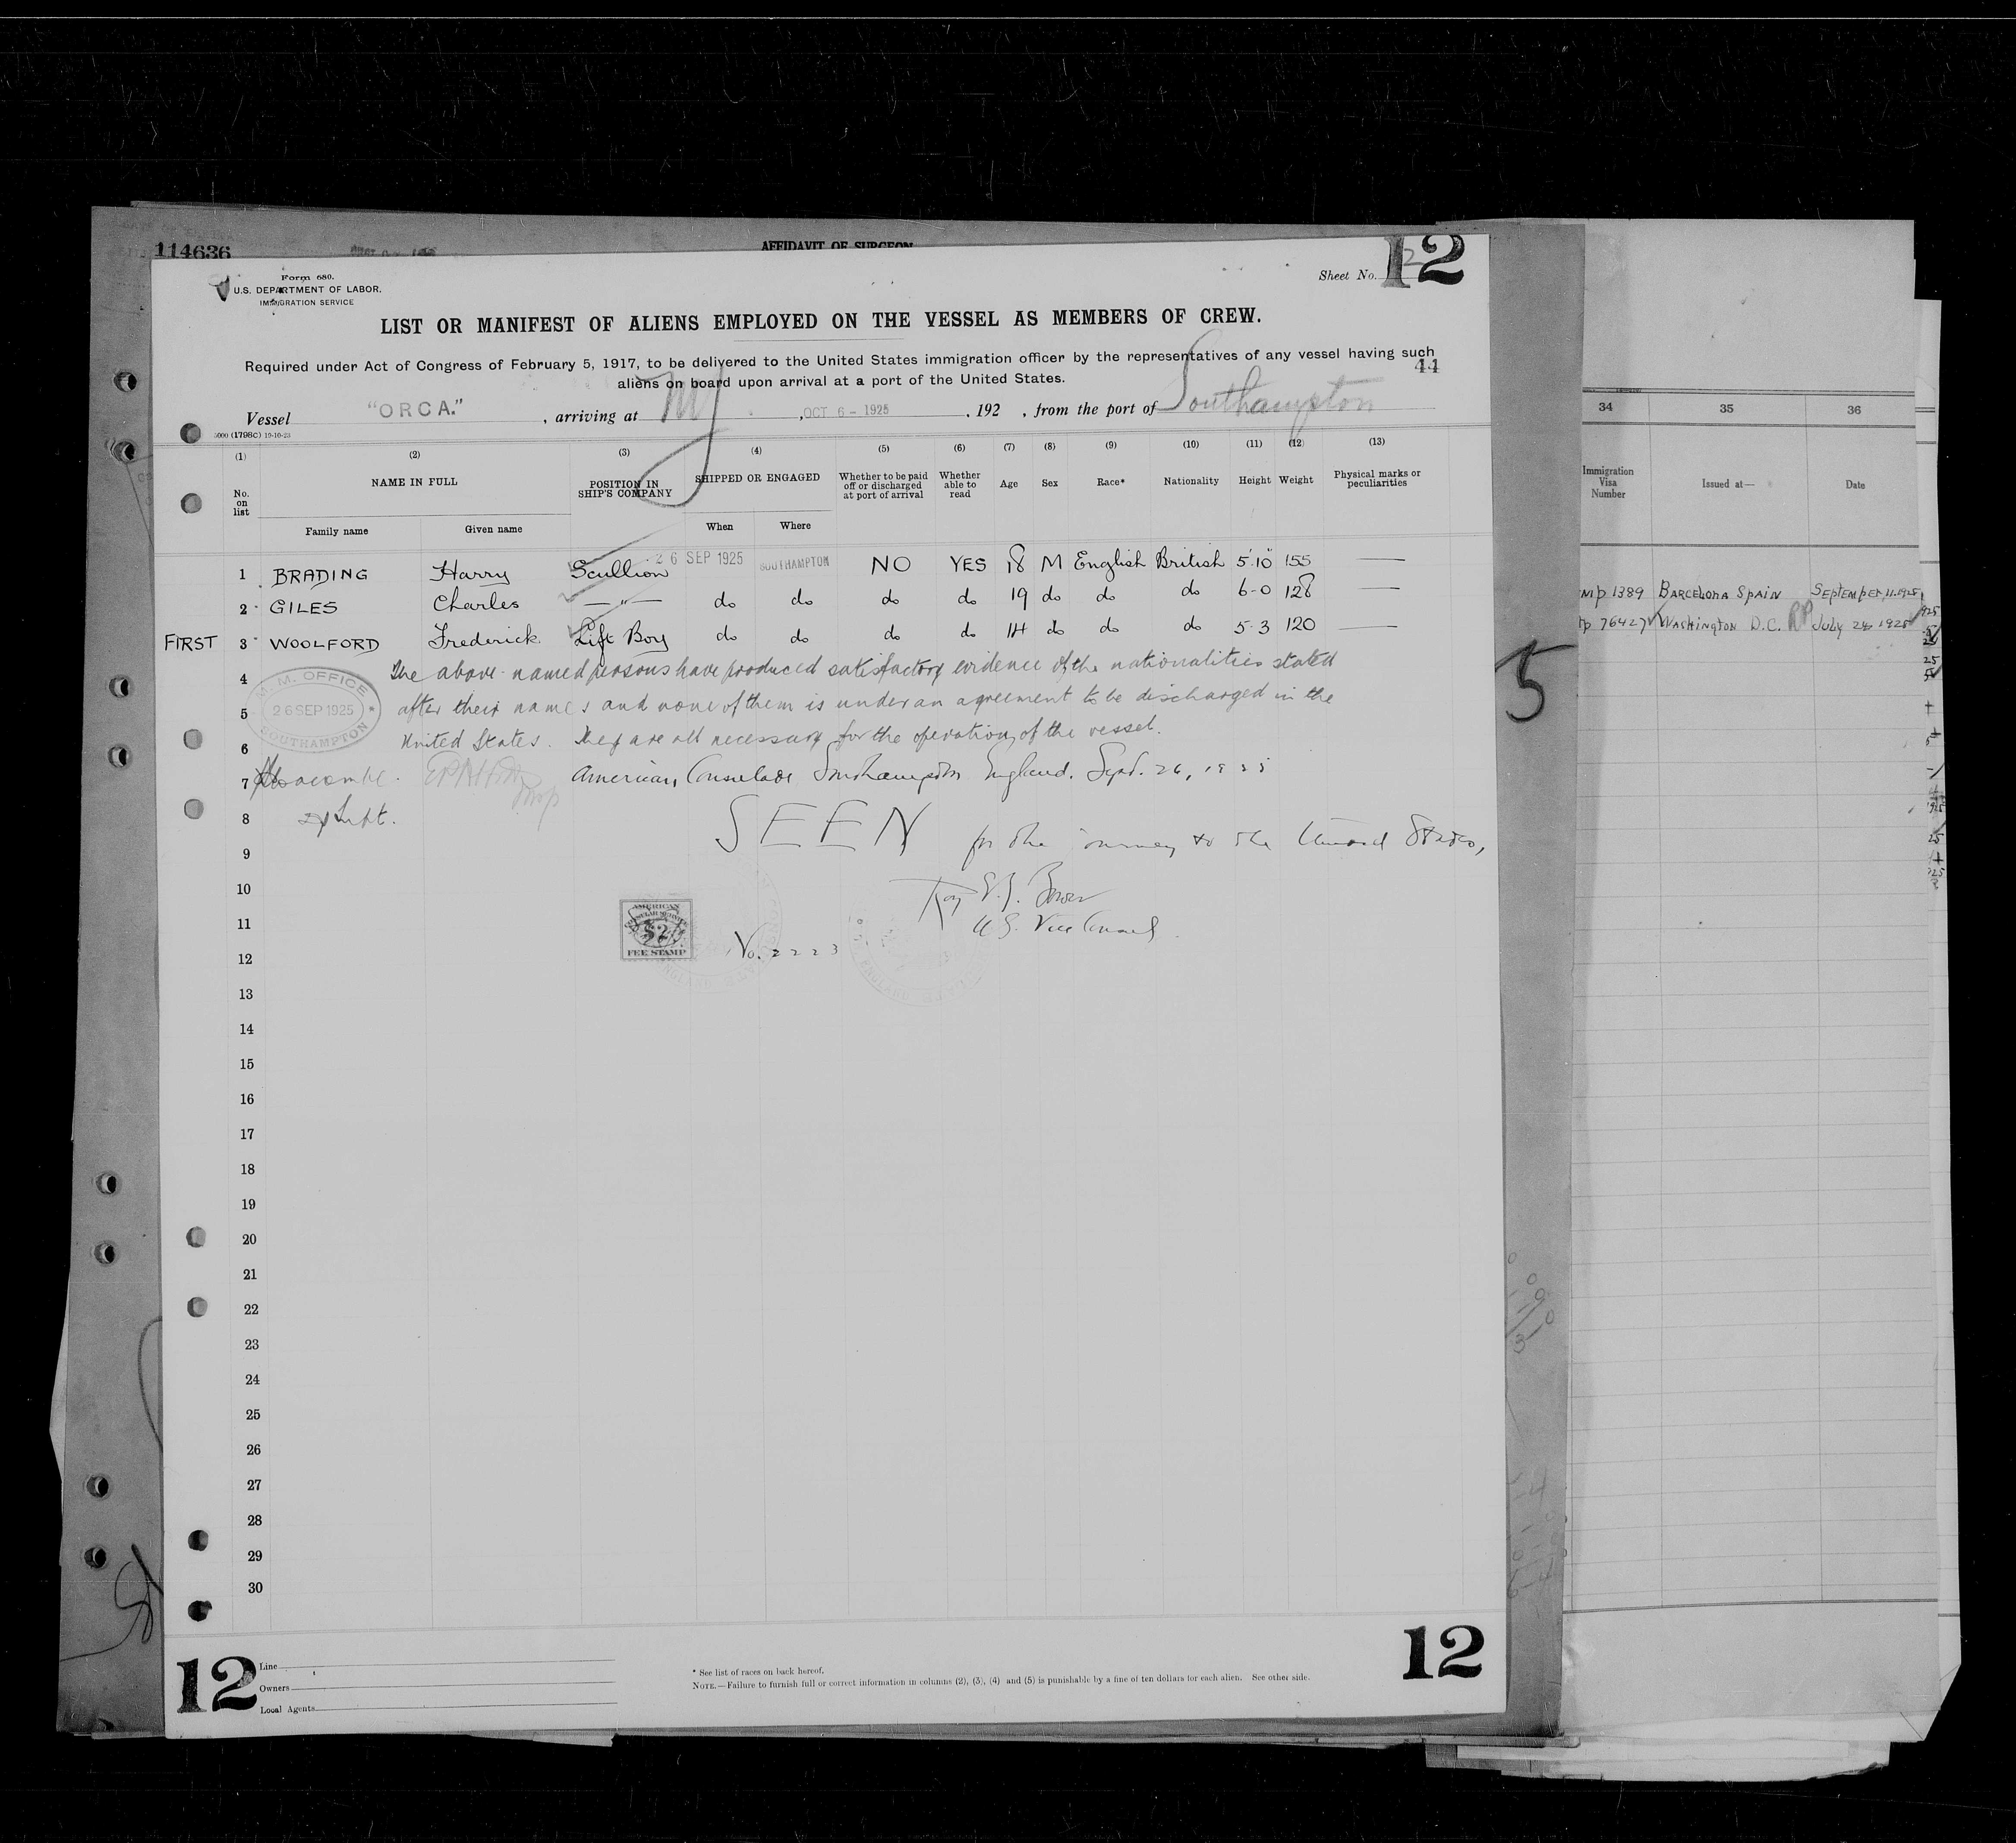 114636
AFFIDAVIT OF SURGEON
12
Form 680.
U.S. DEPARTMENT OF LABOR,
IMMIGRATION SERVICE
Sheet No. 12
LIST OR MANIFEST OF ALIENS EMPLOYED ON THE VESSEL AS MEMBERS OF CREW.
Required under Act of Congress of February 5, 1917, to be delivered to the United States immigration officer by the representatives of any vessel having such
aliens on board upon arrival at a port of the United States.
44
Vessel "ORCA." , arriving at NY , OCT 6 - 1925 , 192 , from the port of Southampton
5000 (1798C) 10-10-23
(1) (2) (3) (4) (5) (6) (7) (8) (9) (10) (11) (12) (13)
No. on list NAME IN FULL POSITION IN SHIP'S COMPANY SHIPPED OR ENGAGED Whether to be paid off or discharged at port of arrival Whether able to read Age Sex Race* Nationality Height Weight Physical marks or peculiarities
Family name Given name When Where
1 BRADING Harry Scullion 26 SEP 1925 SOUTHAMPTON NO YES 18 M English British 5'10" 155 —
2 GILES Charles — " — do do do do 19 do do do 6-0 128 —
FIRST 3 WOOLFORD Frederick Lift Boy do do do do 14 do do do 5-3 120 —
4 The above named persons have produced satisfactory evidence of the nationalities stated
5 after their names and none of them is under an agreement to be discharged in the
6 United States. They are all necessary for the operation of the vessel.
M. M. OFFICE
26 SEP 1925
SOUTHAMPTON
7 American Consulate Southampton England. Sept. 26, 1925
8
SEEN for the journey to the United States,
9
10
Roy E. B. Bower
11 U.S. Vice Consul
AMERICAN
CONSULAR SERVICE
$2
FEE STAMP
No. 2223
12
13
14
15
16
17
18
19
20
21
22
23
24
25
26
27
28
29
30
12
Line
Owners
Local Agents
* See list of races on back hereof.
NOTE.—Failure to furnish full or correct information in columns (2), (3), (4) and (5) is punishable by a fine of ten dollars for each alien. See other side.
12
5
34 35 36
Immigration Visa Number Issued at— Date
1389 BARCELONA SPAIN SEPTEMBER, 11-1925
76427 WASHINGTON D.C. RP JULY 24 1925